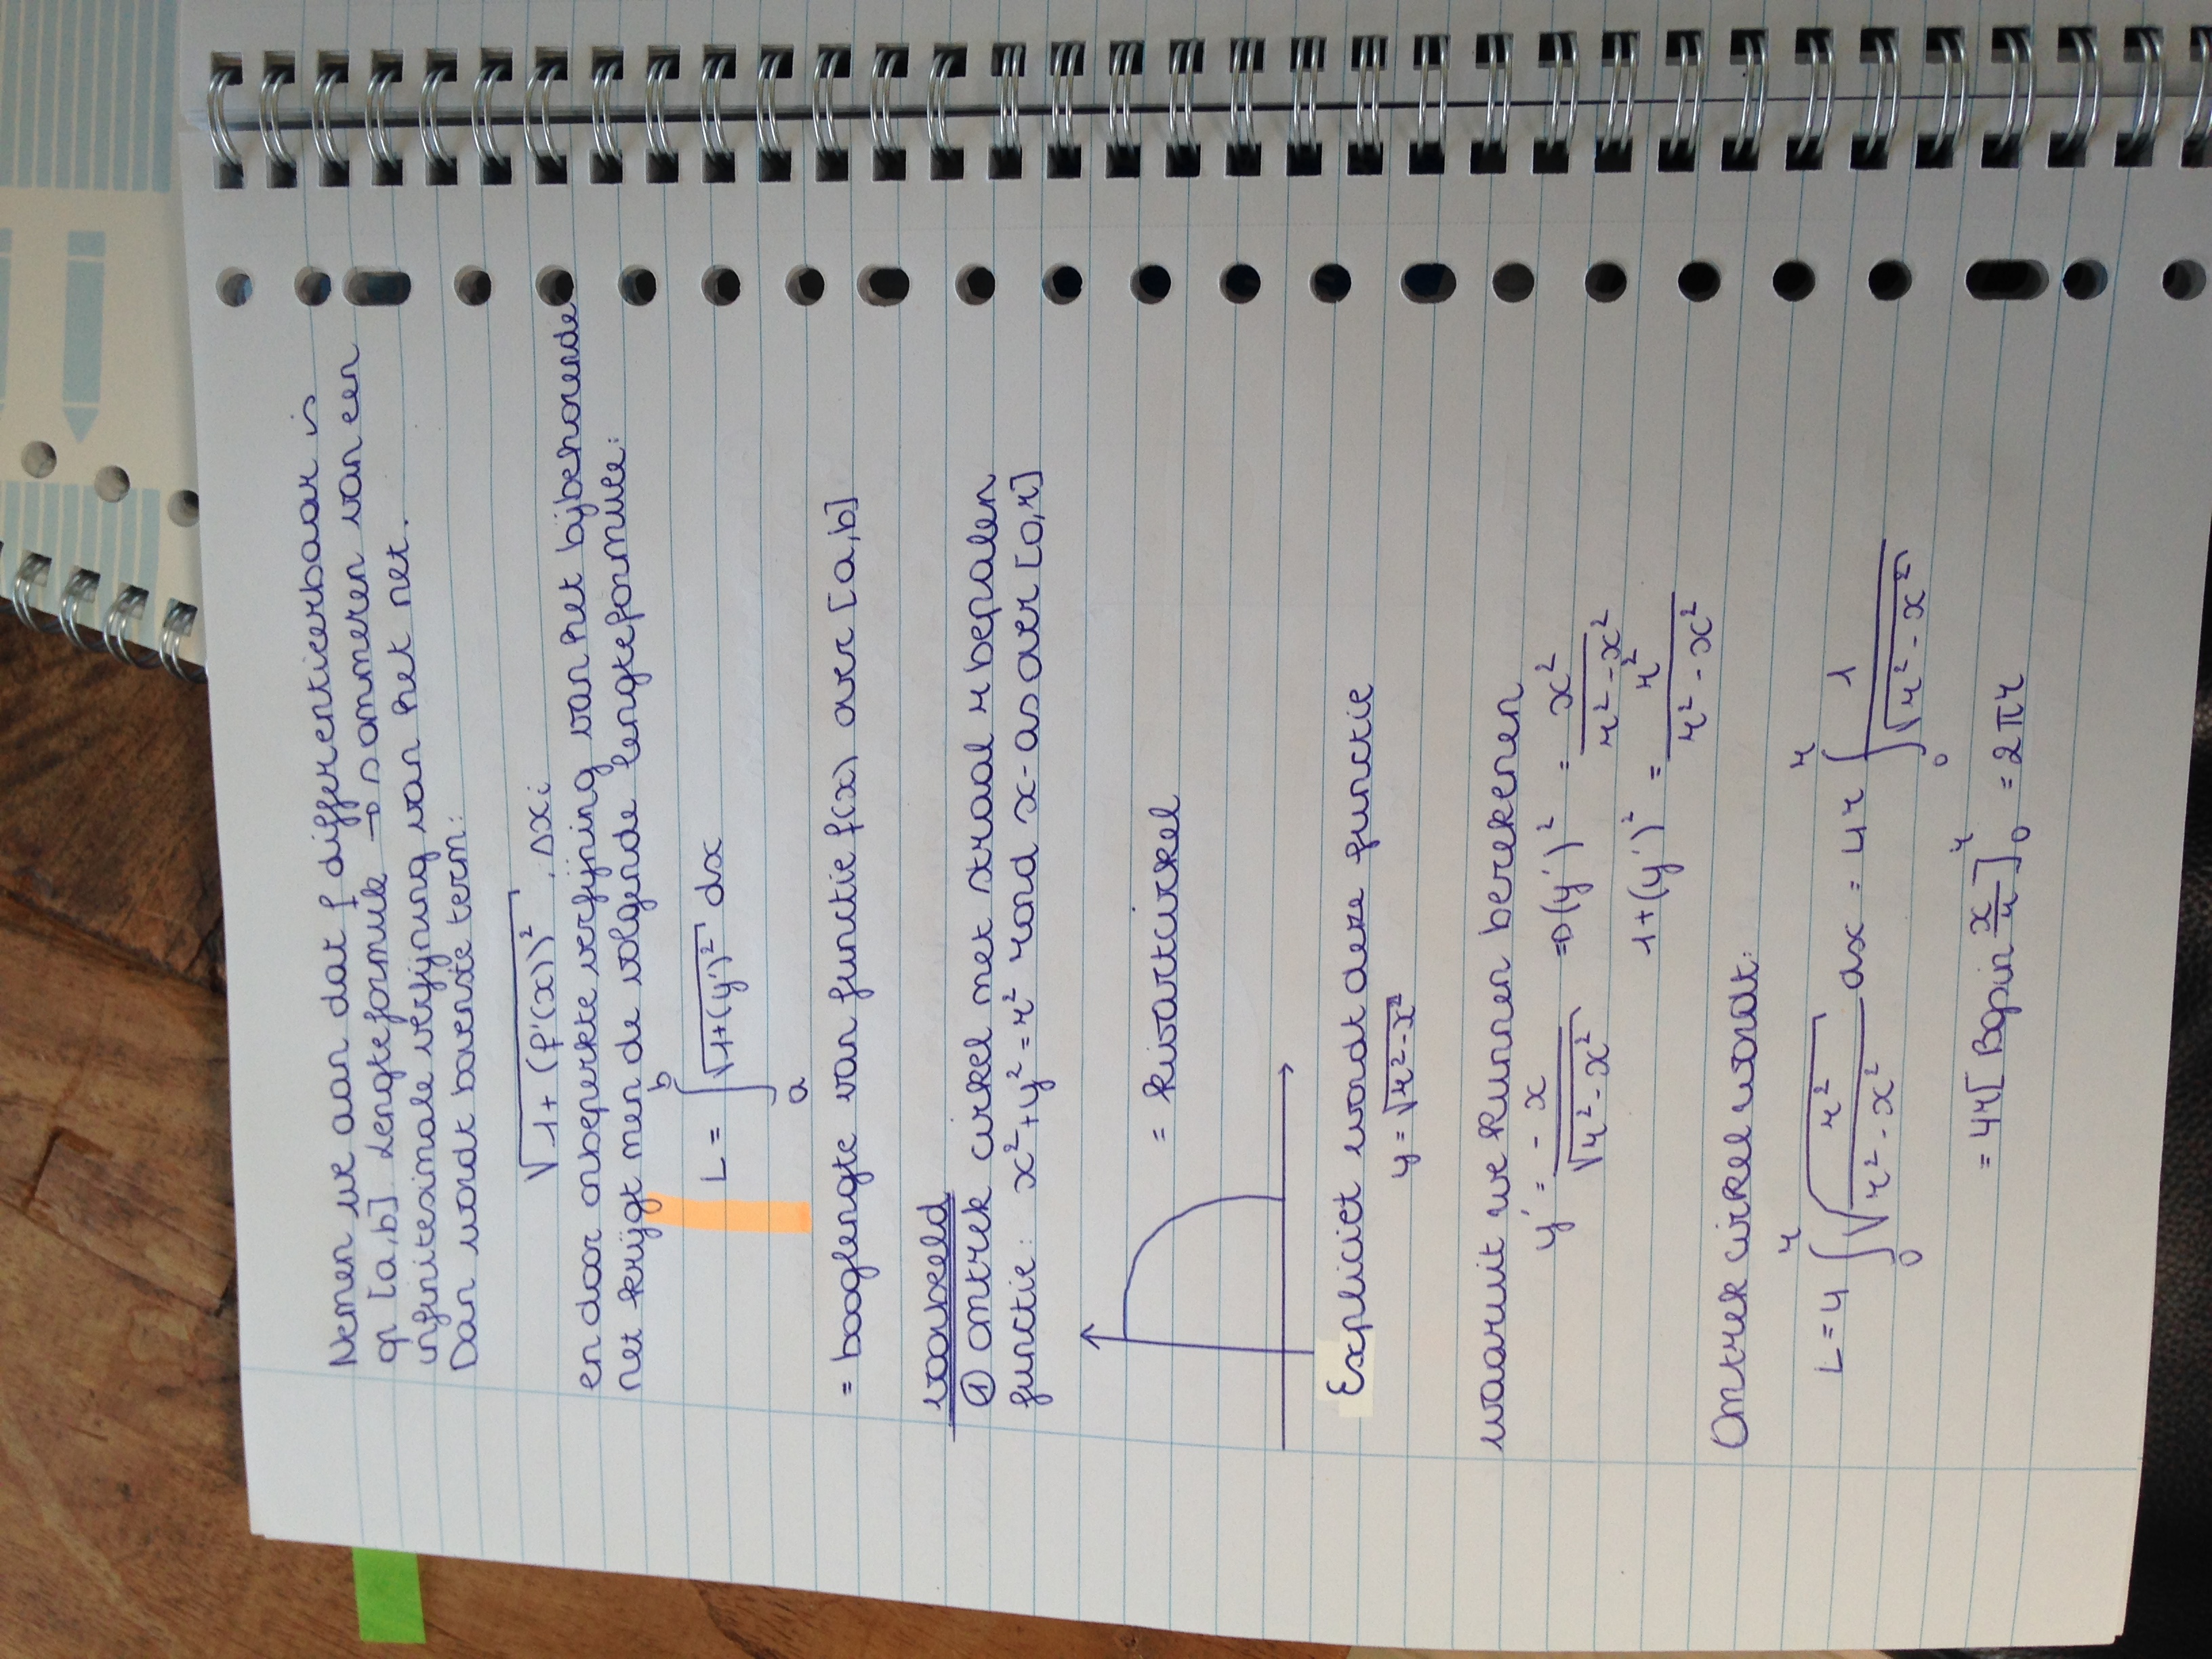 Nemen we aan dat f differentieerbaar is
op [a,b]. Lengteformule → sommeren van een
infinitesimale verfijning van het net.
Dan wordt bovenste term:
√(1+(f'(x))²) . Δxi
en door onbeperkte verfijning van het bijbehorende
net krijgt men de volgende lengteformule:
L = ∫ₐᵇ √(1+(y')²) dx
= booglengte van functie f(x) over [a,b]
voorbeeld
① omtrek cirkel met straal r bepalen
functie: x²+y²=r² rond x-as over [0,r]
= kwartcirkel
Expliciet wordt deze functie
y = √(r²-x²)
waaruit we kunnen berekenen
y' = -x/√(r²-x²) ⇒ (y')² = x²/(r²-x²)
1+(y')² = r²/(r²-x²)
Omtrek cirkel wordt:
L = 4 ∫₀ʳ √(r²/(r²-x²)) dx = 4r ∫₀ʳ 1/√(r²-x²)
= 4r [Bgsin x/r]₀ʳ = 2πr